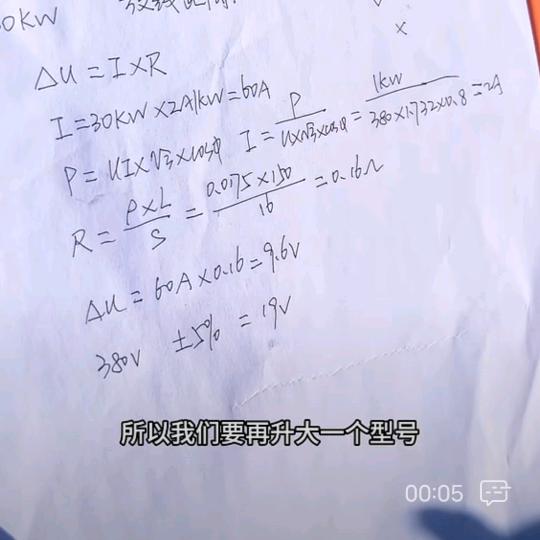 0KW
ΔU = I×R
I = 30KW×2A/KW = 60A
P = UI×√3×cosφ I = P/(U×√3×cosφ) = 1KW/(380×1.732×0.8) = 2A
R = ρ×L/S = 0.0175×150/16 = 0.16Ω
ΔU = 60A×0.16 = 9.6V
380V ±5% = 19V
所以我们要再升大一个型号
00:05